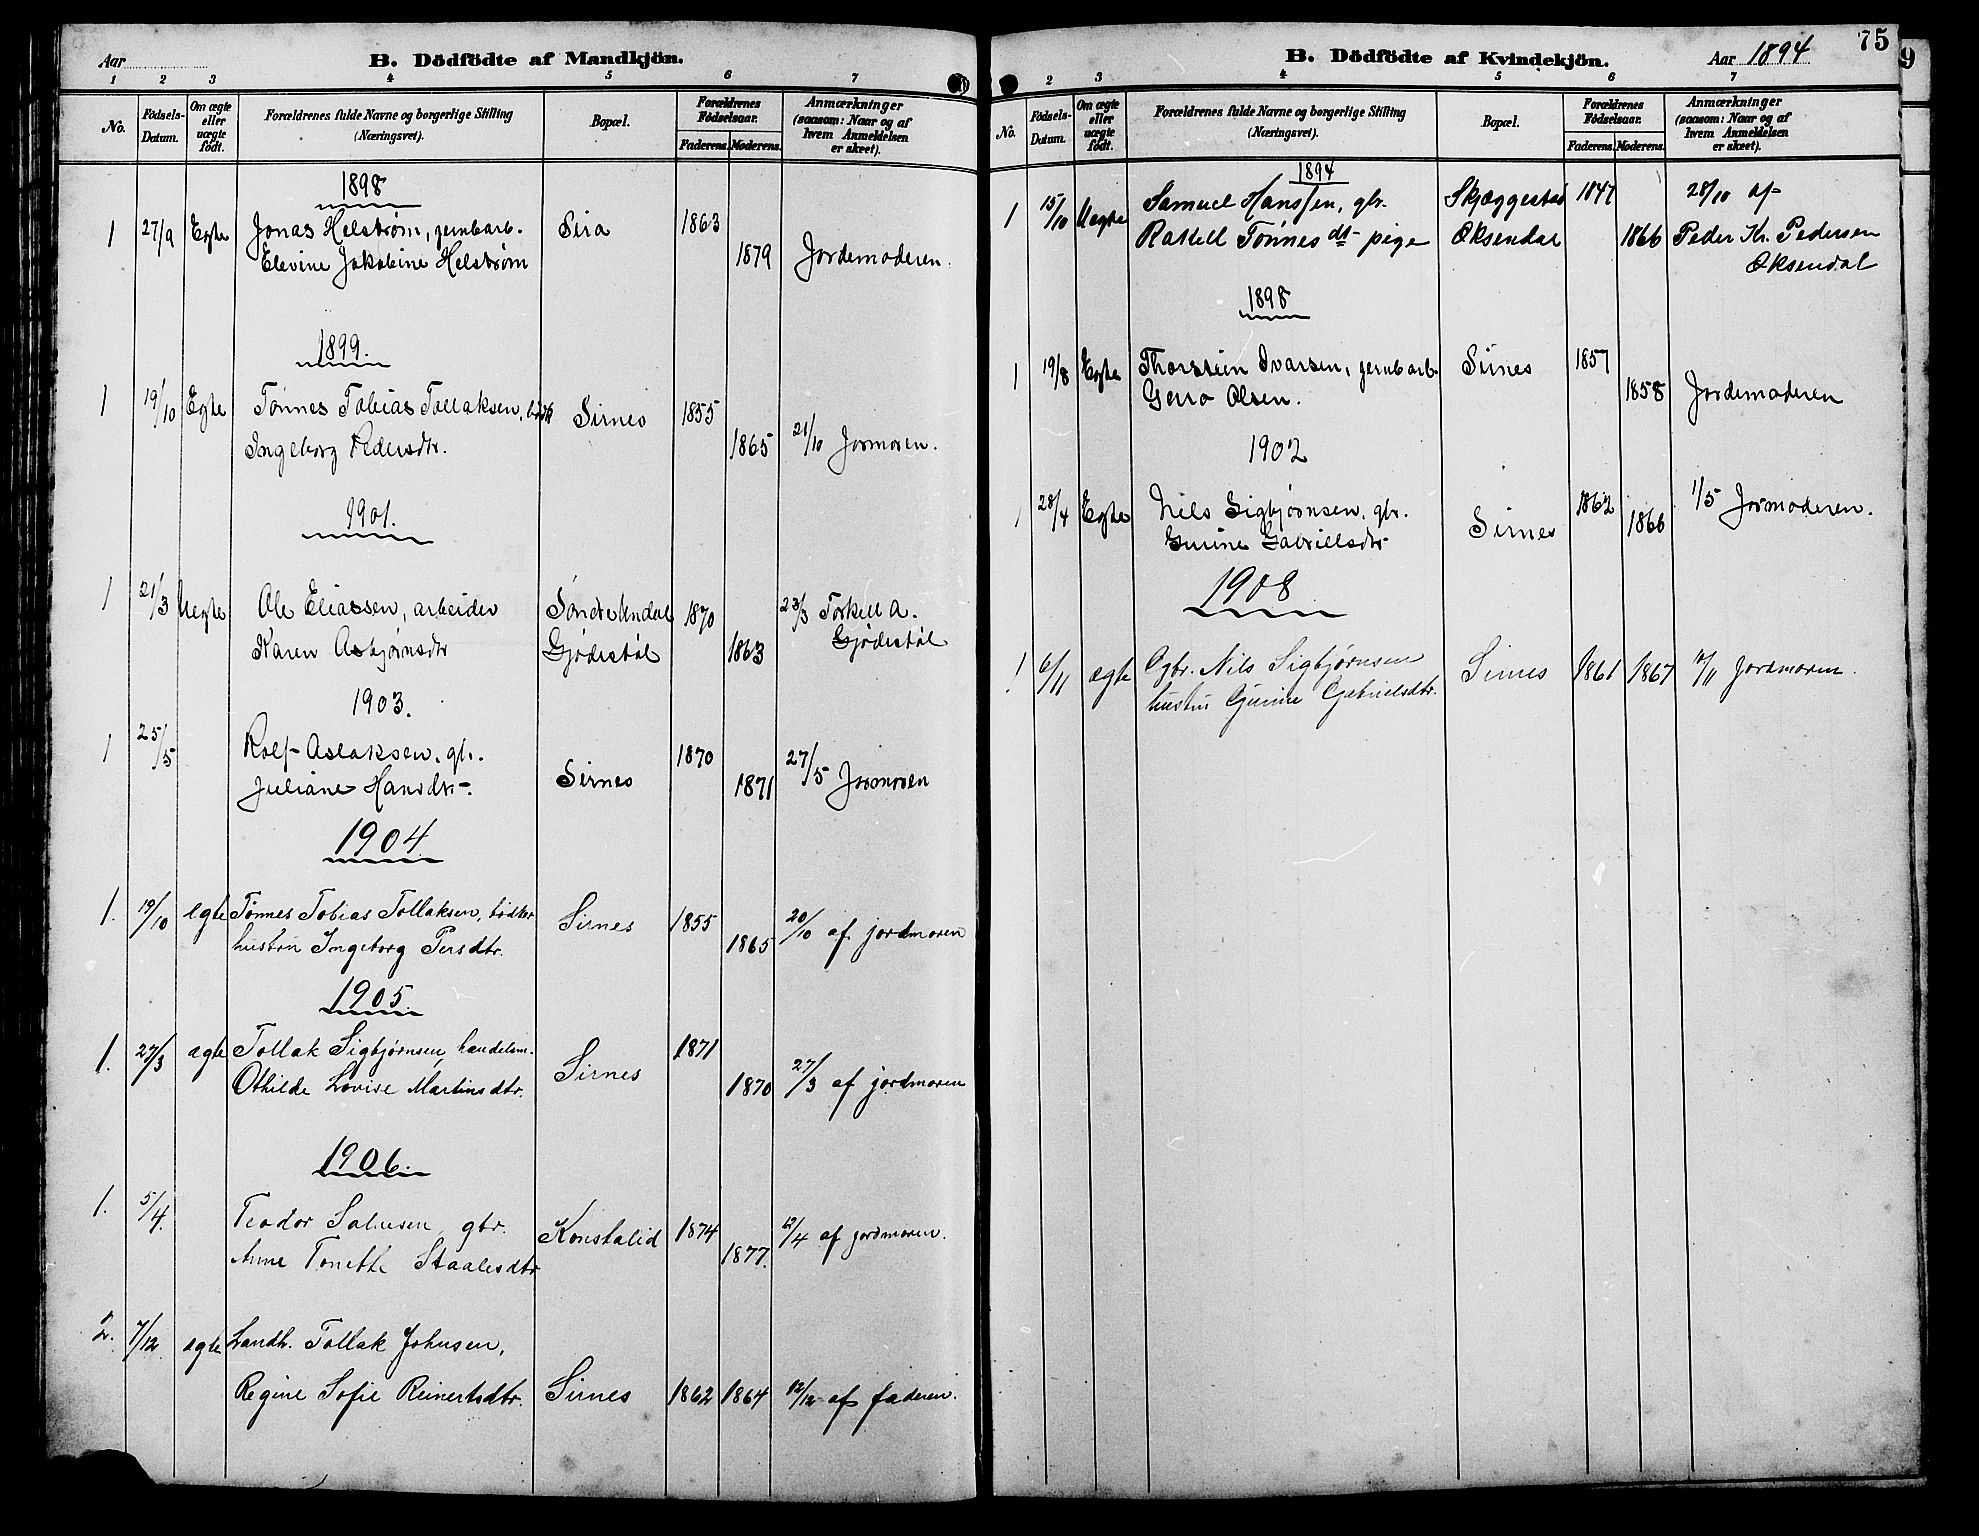 Aar
B. Dödfödte af Mandkjön.
1 2 3 4 5 6 7
No. Födsels-Datum. Om ægte eller uægte födt. Forældrenes fulde Navne og borgerlige Stilling (Næringsvei). Bopæl. Forældrenes Födselsaar. Faderens. Moderens. Anmærkninger (saasom: Naar og af hvem Anmeldelsen er skeet).
1898
1 27/9 Egte Jonas Helstrøm, jernbarb. Sira 1863
Elevine Jakobine Helstrøm 1879 Jordemoderen.
1899.
1 19/10 Egte Tønnes Tobias Tollaksen, Sirnes 1855
Ingeborg Pedersdtr. 1865 21/10 Jormoren.
1901.
1 21/3 Uegte Ole Eliassen, arbeider Søndre Undal 1870 23/3 Torkell A.
Karen Asbjørnsdtr Gjødestøl 1863 Gjødestøl
1903.
1 25/5 Rolf Aslaksen. gbr. Sirnes 1870 27/5 Jormoren
Juliane Hansdtr. 1871
1904
1. 19/10 egte Tønnes Tobias Tollaksen, bødker Sirnes 1855 20/10 af jordmoren
hustru Ingeborg Persdtr. 1865
1905.
1. 27/3 ægte Tollak Sigbjørnsen, handelsm. Sirnes 1871 27/3 af jordmoren
Othilde Lovise Martinsdtr. 1870
1906.
1. 5/4. Teodor Salvesen, gbr. Konstalid 1874 12/4 af jordmoren.
Anne Tonette Staalesdtr 1877.
2. 7/12 ægte Landh. Tollak Johnsen,
Regine Sofie Reinertsdtr. Sirnes 1862 1864 12/12 af faderen.
75
9
B. Dödfödte af Kvindekjön.
Aar 1894
2 3 4 5 6 7
No. Födsels-Datum. Om ægte eller uægte födt. Forældrenes fulde Navne og borgerlige Stilling (Næringsvei). Bopæl. Forældrenes Födselsaar. Faderens. Moderens. Anmærkninger (saasom: Naar og af hvem Anmeldelsen er skeet).
1894
1 15/10 Uegte Samuel Hanssen, gbr. Skjæggestad 1847 28/10 af
Rakell Tønnesdt. pige Øksendal 1866 Peder Kr. Pedersen
Øksendal
1898
1 19/8 Egte Thorstein Ivarsen, jernbarb. Sirnes 1857
Gerro Olsen. 1858 Jordemoderen
1902
1 28/4 Egte Nils Sigbjørnsen. gbr. Sirnes 1862 1/5 Jormoderen.
Gurine Gabrielsdtr 1866
1908
1 6/11 ægte Gbr. Nils Sigbjørnsen Sirnes 1861 1867 /11 jordmoren.
hustru Gurine Gabrielsdtr.